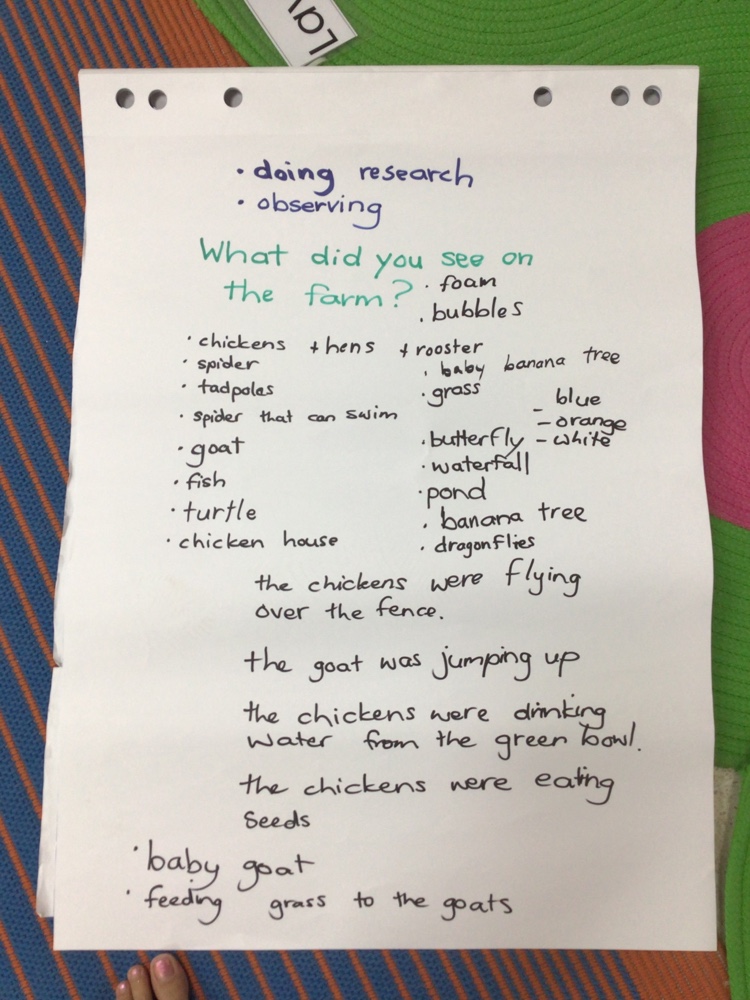 Lav
• doing research
• observing
What did you see on
the farm?
• foam
• bubbles
• chickens + hens + rooster
• spider
• tadpoles
• spider that can swim
• goat
• fish
• turtle
• chicken house
• baby banana tree
• grass
• butterfly
- blue
- orange
- white
• waterfall
• pond
• banana tree
• dragonflies
the chickens were flying
over the fence.
the goat was jumping up
the chickens were drinking
water from the green bowl.
the chickens were eating
seeds
• baby goat
• feeding grass to the goats